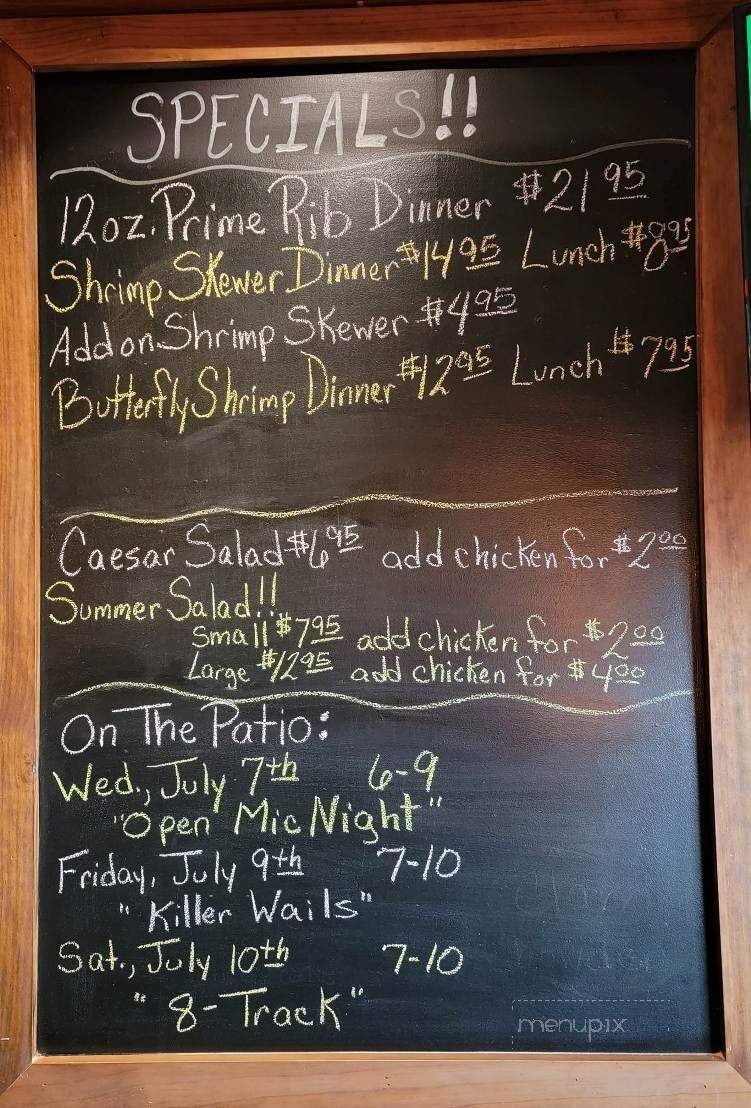 SPECIALS!!
12oz. Prime Rib Dinner $21 95
Shrimp Skewer Dinner $14 95 Lunch $8 95
Add on Shrimp Skewer $4 95
Butterfly Shrimp Dinner $12 95 Lunch $7 95
Caesar Salad $6 95 add chicken for $2 00
Summer Salad!!
Small $7 95 add chicken for $2 00
Large $12 95 add chicken for $4 00
On The Patio:
Wed., July 7th 6-9
"Open Mic Night"
Friday, July 9th 7-10
"Killer Wails"
Sat., July 10th 7-10
"8-Track"
menupix